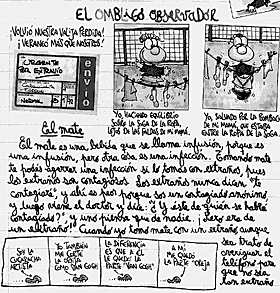 EL OMBLIGO OBSERVADOR
¡VOLVIÓ NUESTRA VALIJA PERDIDA!
¡VERANEÓ MÁS QUE NOSOTROS!
URGENTE
POR EXTRAVÍO
envío
NORMAL
YO, HACIENDO EQUILIBRIO
SOBRE LA SOGA DE LA ROPA,
LEJOS DE LAS FALDAS DE MI MAMÁ.
YO, SALVADO POR LA BOMBACHA
DE MI MAMÁ, QUE ESTABA
ENTRE LA ROPA DE LA SOGA.
El mate
El mate es una bebida que se llama infusión, porque es
una infusión, pero otra cosa es una infección. Tomando mate
te podés agarrar una infección si lo tomás con extraños, pues
los extraños son contagiosos. Los extraños nunca dicen "te
contagié", y ahí es peor porque sos un contagiado anónimo
y luego vas al doctor y dice: "¿Y éste de quién se habrá
contagiado?", y uno piensa que de nadie... ¡pero era de
un extraño! Cuando yo tomé mate con un extraño aunque
sea trato de
averiguar el
teléfono para
que no sea
tan extraño.
SOY LA
CUCARACHA
ARTISTA
YO TAMBIÉN
ME CORTÉ
LA OREJA
COMO VAN GOGH
LA DIFERENCIA
ES QUE A ÉL
LE QUEDÓ LA
PARTE "VAN GOGH"
A MÍ
ME QUEDÓ
LA PARTE "OREJA"